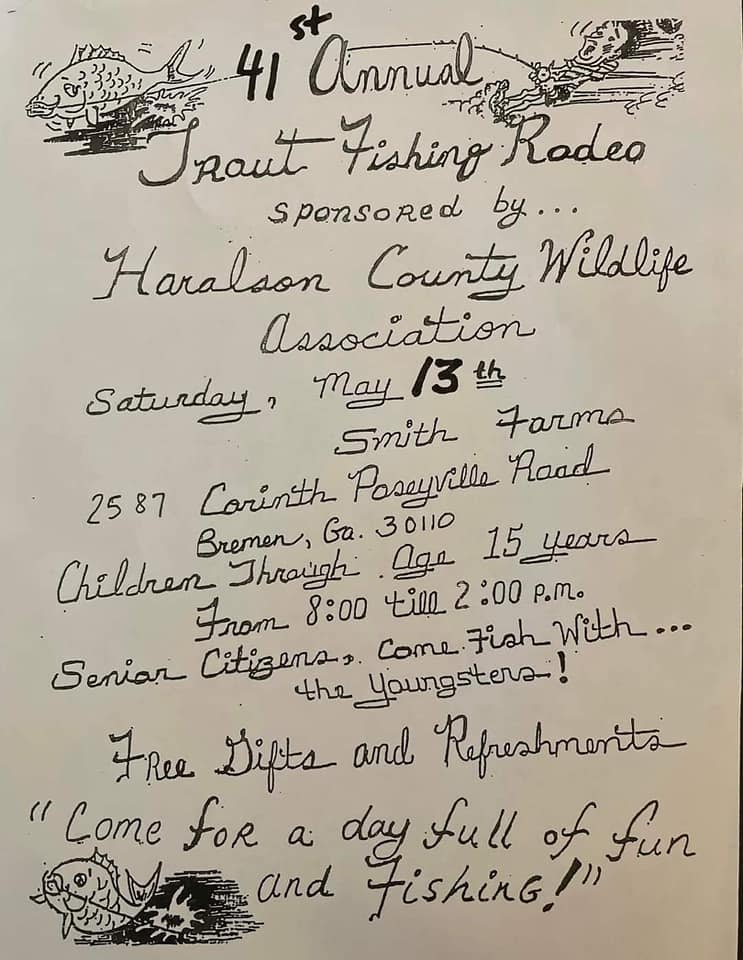 41st Annual
Trout Fishing Rodeo
Sponsored by...
Haralson County Wildlife
Association
Saturday, May 13th
Smith Farms
2587 Corinth Poseyville Road
Bremen, Ga. 30110
Children Through Age 15 years
From 8:00 till 2:00 p.m.
Senior Citizens, Come Fish With...
the Youngsters!
Free Gifts and Refreshments
"Come for a day full of fun
and Fishing!"